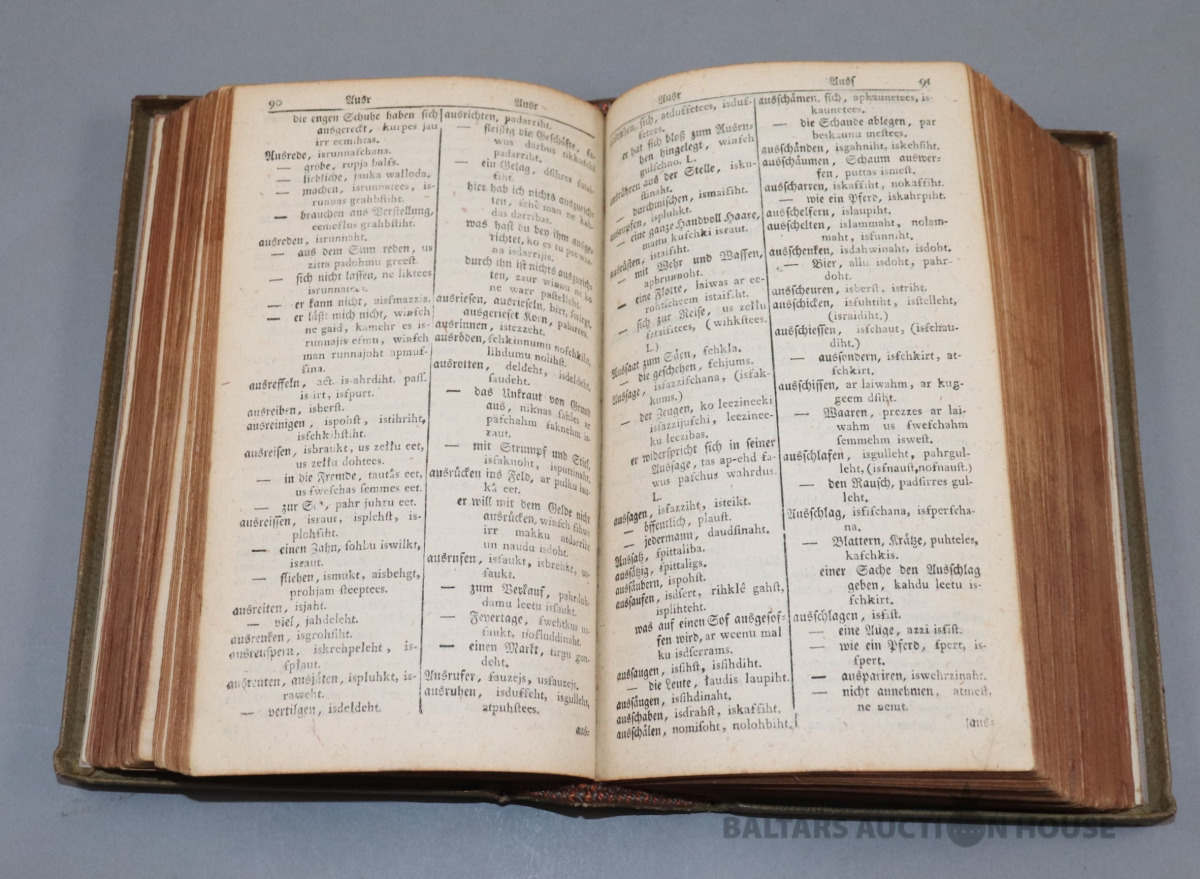 90
Ausr
Ausr
die engen Schuhe haben sich
ausgereckt, kurpes jau
irr eemihtas.
Ausrede, isrunnaschana.
— grobe, rupja balfs.
— liebliche, jauka walloda.
— machen, isrunnetees, is-
runnas grahbſtiht.
— brauchen aus Verstellung,
eemeſlus grahbſtiht.
ausreden, isrunnaht.
— aus dem Sinn reden, us
zitta padohmu greeſt.
— sich nicht lassen, ne liktees
— er kann nicht, aisſmazzis.
— er läßt mich nicht, winſch
ne gaid, kamehr es is-
runnajis eſmu, winſch
man runnajoht apmuſ-
ſina.
ausreffeln, act. is-ahrdiht. paſſ.
is irt, iſpurt.
ausreiben, isberſt.
ausreinigen, ispohſt, istihriht,
ausreisen, isbraukt, us zeļļu eet,
us zeļļu dohtees.
— in die Fremde, tautâs eet,
us ſweſchas ſemmes eet.
— zur pahr juhru eet.
ausreissen, israut, isplehſt, is-
plohſiht.
— einen Zahn, ſohbu iswilkt,
israut.
— fliehen, ismukt, aisbehgt,
prohjam ſteeptees.
ausreiten, isjaht.
— viel, jahdeleht.
ausrenken, isgrohſiht.
ausreuspern, iskrehpeleht, is-
ſplaut.
ausreuten, ausjäten, ispluhkt, is-
raweht.
— vertilgen, isdeldeht.
ausrichten, padarriht.
— fleißig die Geschäfte,
wus darbus
padarriht.
— ein Gelag, dſihres
hier hab ich nichts
ten, ſchê man ne
das darribas.
was hast du bey ihm
richtet, ko es tu pee
na isdarrijis.
durch ihn ist nichts
ten, zaur winnu ne ko
ne warr paſtelleht.
ausriesen, ausrieseln, birt,
ausgerieset Korn,
ausrinnen, istezzeht.
ausröden,
lihdumu nolihſt.
ausrotten, deldeht, isdeldeht,
ſaudeht.
— das Unkraut von Grund
aus, niknas ſahles ar
paſchahm ſaknehm is-
raut.
— mit Strumpf und Stiel,
isſaknoht,
ausrücken ins Feld, ar pulku
kâ eet.
er will mit dem Gelde nicht
ausrücken, winſch
irr makku
un naudu isdoht.
ausrufen, isſaukt, isbrehkt, us-
ſaukt.
— zum Verkauf,
damu leetu isſaukt.
— Feyertage, ſwehtkus us-
ſaukt,
— einen Markt, tirgu
deht.
Ausrufer, ſauzejs, usſauzejs.
ausruhen, isduſſeht, isgulleht,
atpuhſtees.
aus-
Ausr
Ausſ
91
sich, atduſſetees, isduſ-
ſetees.
er hat sich bloß zum Ausru-
hen hingelegt, winſch
gulſchno. L.
ausrühren aus der Stelle, isku-
ſtinaht.
— durchmischen, ismaiſiht.
ausrupfen, ispluhkt.
— eine ganze Handvoll Haare,
mattu kuſchki israut.
ausrüsten, istaiſiht.
— mit Wehr und Waffen,
apbrunnoht.
— eine Flotte, laiwas ar ee-
rohtſcheem istaiſiht.
— sich zur Reise, us zeļļu
ſataiſitees, (wihkſtees.
L.)
Aussaat zum Säen, ſehkla.
— die geschehen, ſehjums.
Aussage, isſazziſchana, (isſak-
kums.)
— der Zeugen, ko leezineeki
isſazzijuſchi, leezinee-
ku leezibas.
er widerspricht sich in seiner
Aussage, tas ap-ehd ſa-
wus paſchus wahrdus.
L.
aussagen, isſazziht, isteikt.
— öffentlich, plauſt.
— jedermann, daudſinaht.
Aussatz, ſpittaliba.
aussätzig, ſpittaligs.
aussäubern, ispohſt.
aussaufen, isdſert, rihklê gahſt,
isplihteht.
was auf einen Sof ausgesof-
fen wird, ar weenu mal
ku isdſerrams.
aussaugen, isſihſt, isſihdiht.
— die Leute, ļaudis laupiht.
aussäugen, isſihdinaht.
ausschaben, isdrahſt, iskaſſiht.
ausschälen, nomiſoht, nolohbiht,
ausschämen, sich, apkaunetees, is-
kaunetees.
— die Schande ablegen, par
beskaunu meſtees.
ausschänden, isgahniht, iskehſiht.
ausschäumen, Schaum auswer-
fen, puttas ismeſt.
ausscharren, iskaſſiht, nokaſſiht.
— wie ein Pferd, iskahrpiht.
ausschelfern, islaupiht.
ausschelten, islammaht, nolam-
maht, isſunniht.
ausschenken, isdahwinaht, isdoht.
— Bier, allu isdoht, pahr-
doht.
ausscheuren, isberſt, istriht.
ausschicken, isſuhtiht, isſtelleht,
(israidiht.)
ausschiessen, isſchaut, (isſchau-
diht.)
— aussondern, isſchkirt, at-
ſchkirt.
ausschissen, ar laiwahm, ar kug-
geem dſiht.
— Waaren, prezzes ar lai-
wahm us ſweſchahm
ſemmehm isweſt.
ausschlafen, isgulleht, pahrgul-
leht, (isſnauſt,noſnauſt.)
— den Rausch, padſirres gul-
leht.
Ausschlag, isſiſchana, isſperſcha-
na.
— Blattern, Krätze, puhteles,
kaſchkis.
einer Sache den Ausschlag
geben, kahdu leetu is-
ſchkirt.
ausschlagen, isſiſt.
— eine Auge, azzi isſiſt.
— wie ein Pferd, ſpert, is-
ſpert.
— auspariren, iswehrzinaht.
— nicht annehmen, atmeſt,
ne ņemt.
aus-
BALTARS AUCTION HOUSE